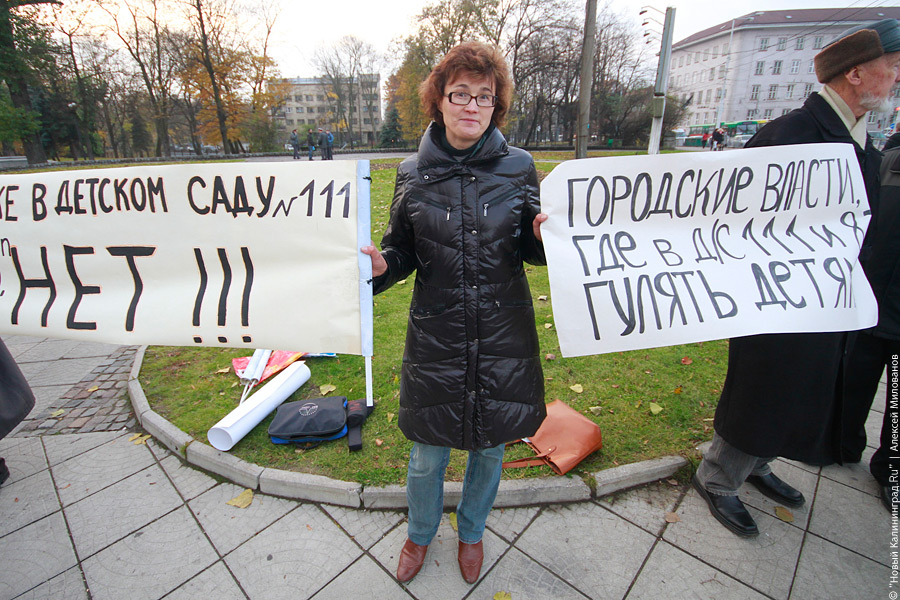 В ДЕТСКОМ САДУ №111
НЕТ !!!
ГОРОДСКИЕ ВЛАСТИ,
ГДЕ В Д/С 111 И
ГУЛЯТЬ ДЕТЯМ
© "Новый Калининград.Ru" | Алексей Милованов